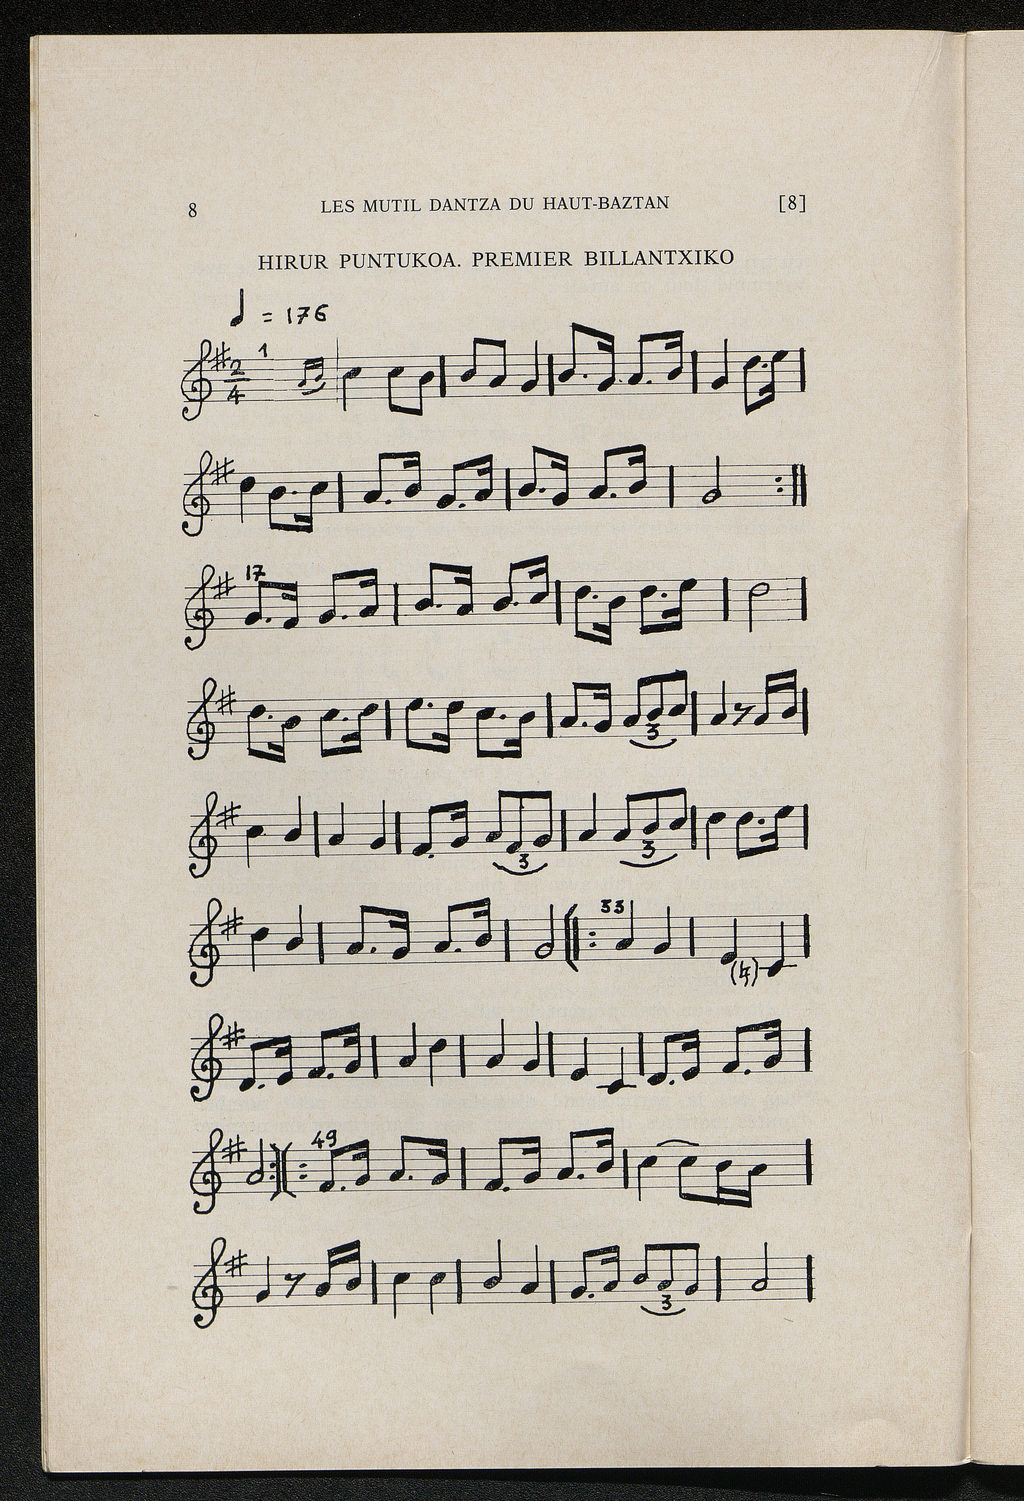 8 LES MUTIL DANTZA DU HAUT-BAZTAN [8]
HIRUR PUNTUKOA. PREMIER BILLANTXIKO
= 176
1
2
4
17
3
3 3
33
(♮)
49
3